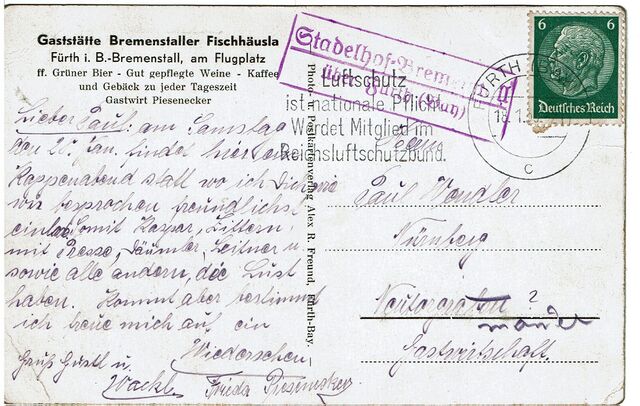 Gaststätte Bremenstaller Fischhäusla
Fürth i. B.-Bremenstall, am Flugplatz
ff. Grüner Bier - Gut gepflegte Weine - Kaffee
und Gebäck zu jeder Tageszeit
Gastwirt Piesenecker
Lieber Paul: am Samstag
den Jan. findet hier ein
Kappenabend statt wo ich Dich wie
wir besprochen freundlichst
einlade. Somit Kaspar,
mit Presse, Däumler, Leitner u.
sowie alle andern, die Lust
haben. Kommt aber bestimmt
ich freue mich auf ein
Wiedersehen
Gruß Gustl u.
Frieda
Photo- u. Postkartenverlag Alex R. Freund, Fürth-Bay.
Stadelhof-Bremenstall
über Fürth (Bay)
Luftschutz
ist nationale Pflicht
Werdet Mitglied im
Reichsluftschutzbund.
FÜRTH
c
6 6
Deutsches Reich
Paul
Nürnberg
?
Gastwirtschaft.